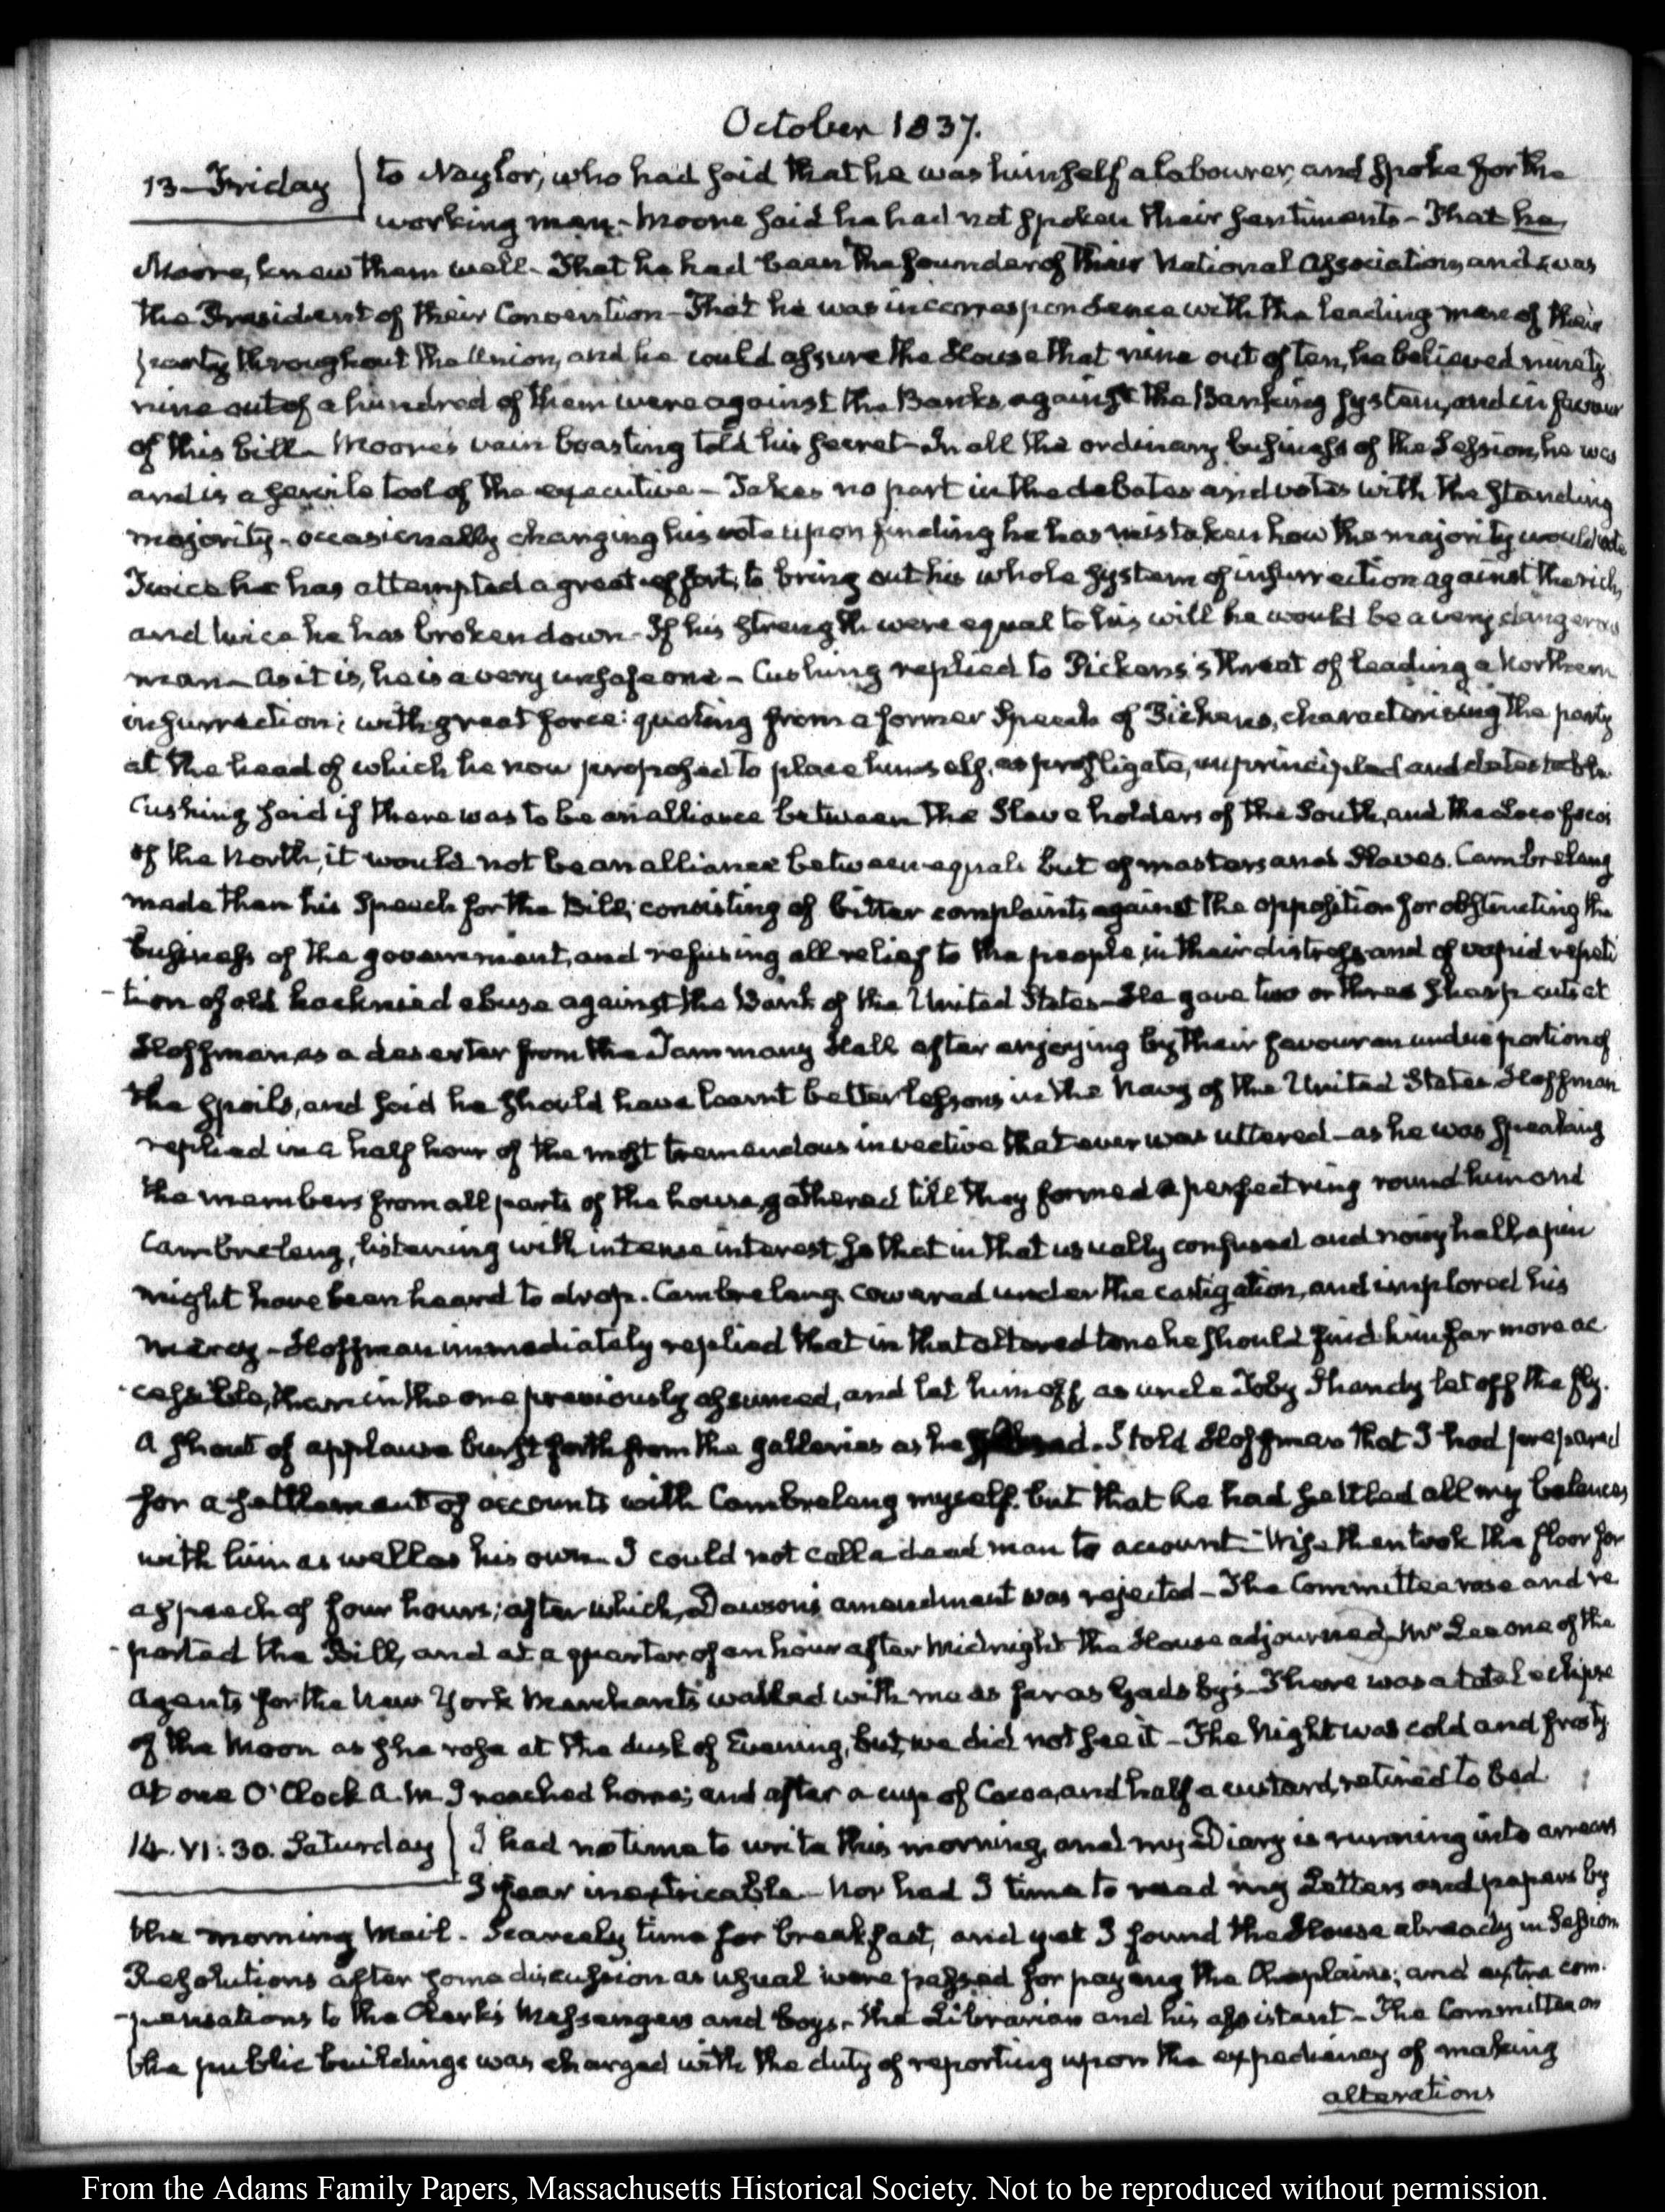 October 1837.
13 – Friday
to Naylor, who had said that he was himself a labourer, and spoke for the
working man – Moore said he had not spoken their sentiments – That he,
Moore, knew them well – That he had been the founder of their National Association, and was
the President of their Convention – That he was in correspondence with the leading men of their
party throughout the Union, and he could assure the House that nine out of ten, he believed ninety
nine out of a hundred of them were against the Banks, against the Banking system, and in favour
of this bill – Moore's vain boasting told his secret – In all the ordinary business of the Session, he was
and is a servile tool of the executive – Takes no part in the debates and votes with the standing
majority – occasionally changing his vote upon finding he has mistaken how the majority would vote
Twice he has attempted a great effort, to bring out his whole system of insurrection against the rich,
and twice he has broken down – If his strength were equal to his will he would be a very dangerous
man – as it is, he is a very unsafe one – Cushing replied to Pickens's threat of leading a Northern
insurrection; with great force: quoting from a former Speech of Pickens, characterising the party
at the head of which he now proposed to place himself, as profligate, unprincipled and detestable.
Cushing said if there was to be an alliance between the Slave holders of the South, and the Loco focos
of the North, it would not be an alliance between equals but of masters and Slaves. Cambreleng
made then his Speech for the Bill, consisting of bitter complaints against the opposition for obstructing the
business of the government, and refusing all relief to the people in their distress and of vapid repeti
-tion of old hacknied abuse against the Bank of the United States – He gave two or three sharp cuts at
Hoffman, as a deserter from the Tammany Hall after enjoying by their favour an undue portion of
the spoils, and said he should have learnt better lessons in the Navy of the United States. Hoffman
replied in a half hour of the most tremendous invective that ever was uttered – as he was speaking
the members from all parts of the house, gathered till they formed a perfect ring round him and
Cambreleng, listening with intense interest, so that in that usually confused and noisy hall, a pin
might have been heard to drop. Cambreleng cowered under the castigation, and implored his
mercy – Hoffman immediately replied that in that altered tone he should find him far more ac
-cessible, than in the one previously assumed, and let him off, as uncle Toby Shandy let off the fly.
A shout of applause burst forth from the galleries as he closed. I told Hoffman that I had prepared
for a settlement of accounts with Cambreleng myself, but that he had settled all my balances
with him as well as his own – I could not call a dead man to account – Wise then took the floor for
a speech of four hours; after which, Dawson's amendment was rejected – The Committee rose and re
-ported the Bill, and at a quarter of an hour after midnight the House adjourned – Mr Lee one of the
agents for the New York Merchants walked with me as far as Gadsby's – There was a total eclipse
of the Moon as she rose at the dusk of Evening, but we did not see it – The Night was cold and frosty.
at one O'Clock A.M. I reached home; and after a cup of Cocoa, and half a custard, retired to bed
14. VI: 30. Saturday
I had no time to write this morning, and my Diary is running into arrears
I fear inextricable – Nor had I time to read my Letters and papers by
the morning Mail. Scarcely time for breakfast, and yet I found the House already in Session
Resolutions after some discussion as usual were passed for paying the Chaplains; and extra com
-pensations to the Clerk's Messengers and boys – the Librarian and his assistant – The Committee on
the public buildings was charged with the duty of reporting upon the expediency of making
alterations
From the Adams Family Papers, Massachusetts Historical Society. Not to be reproduced without permission.